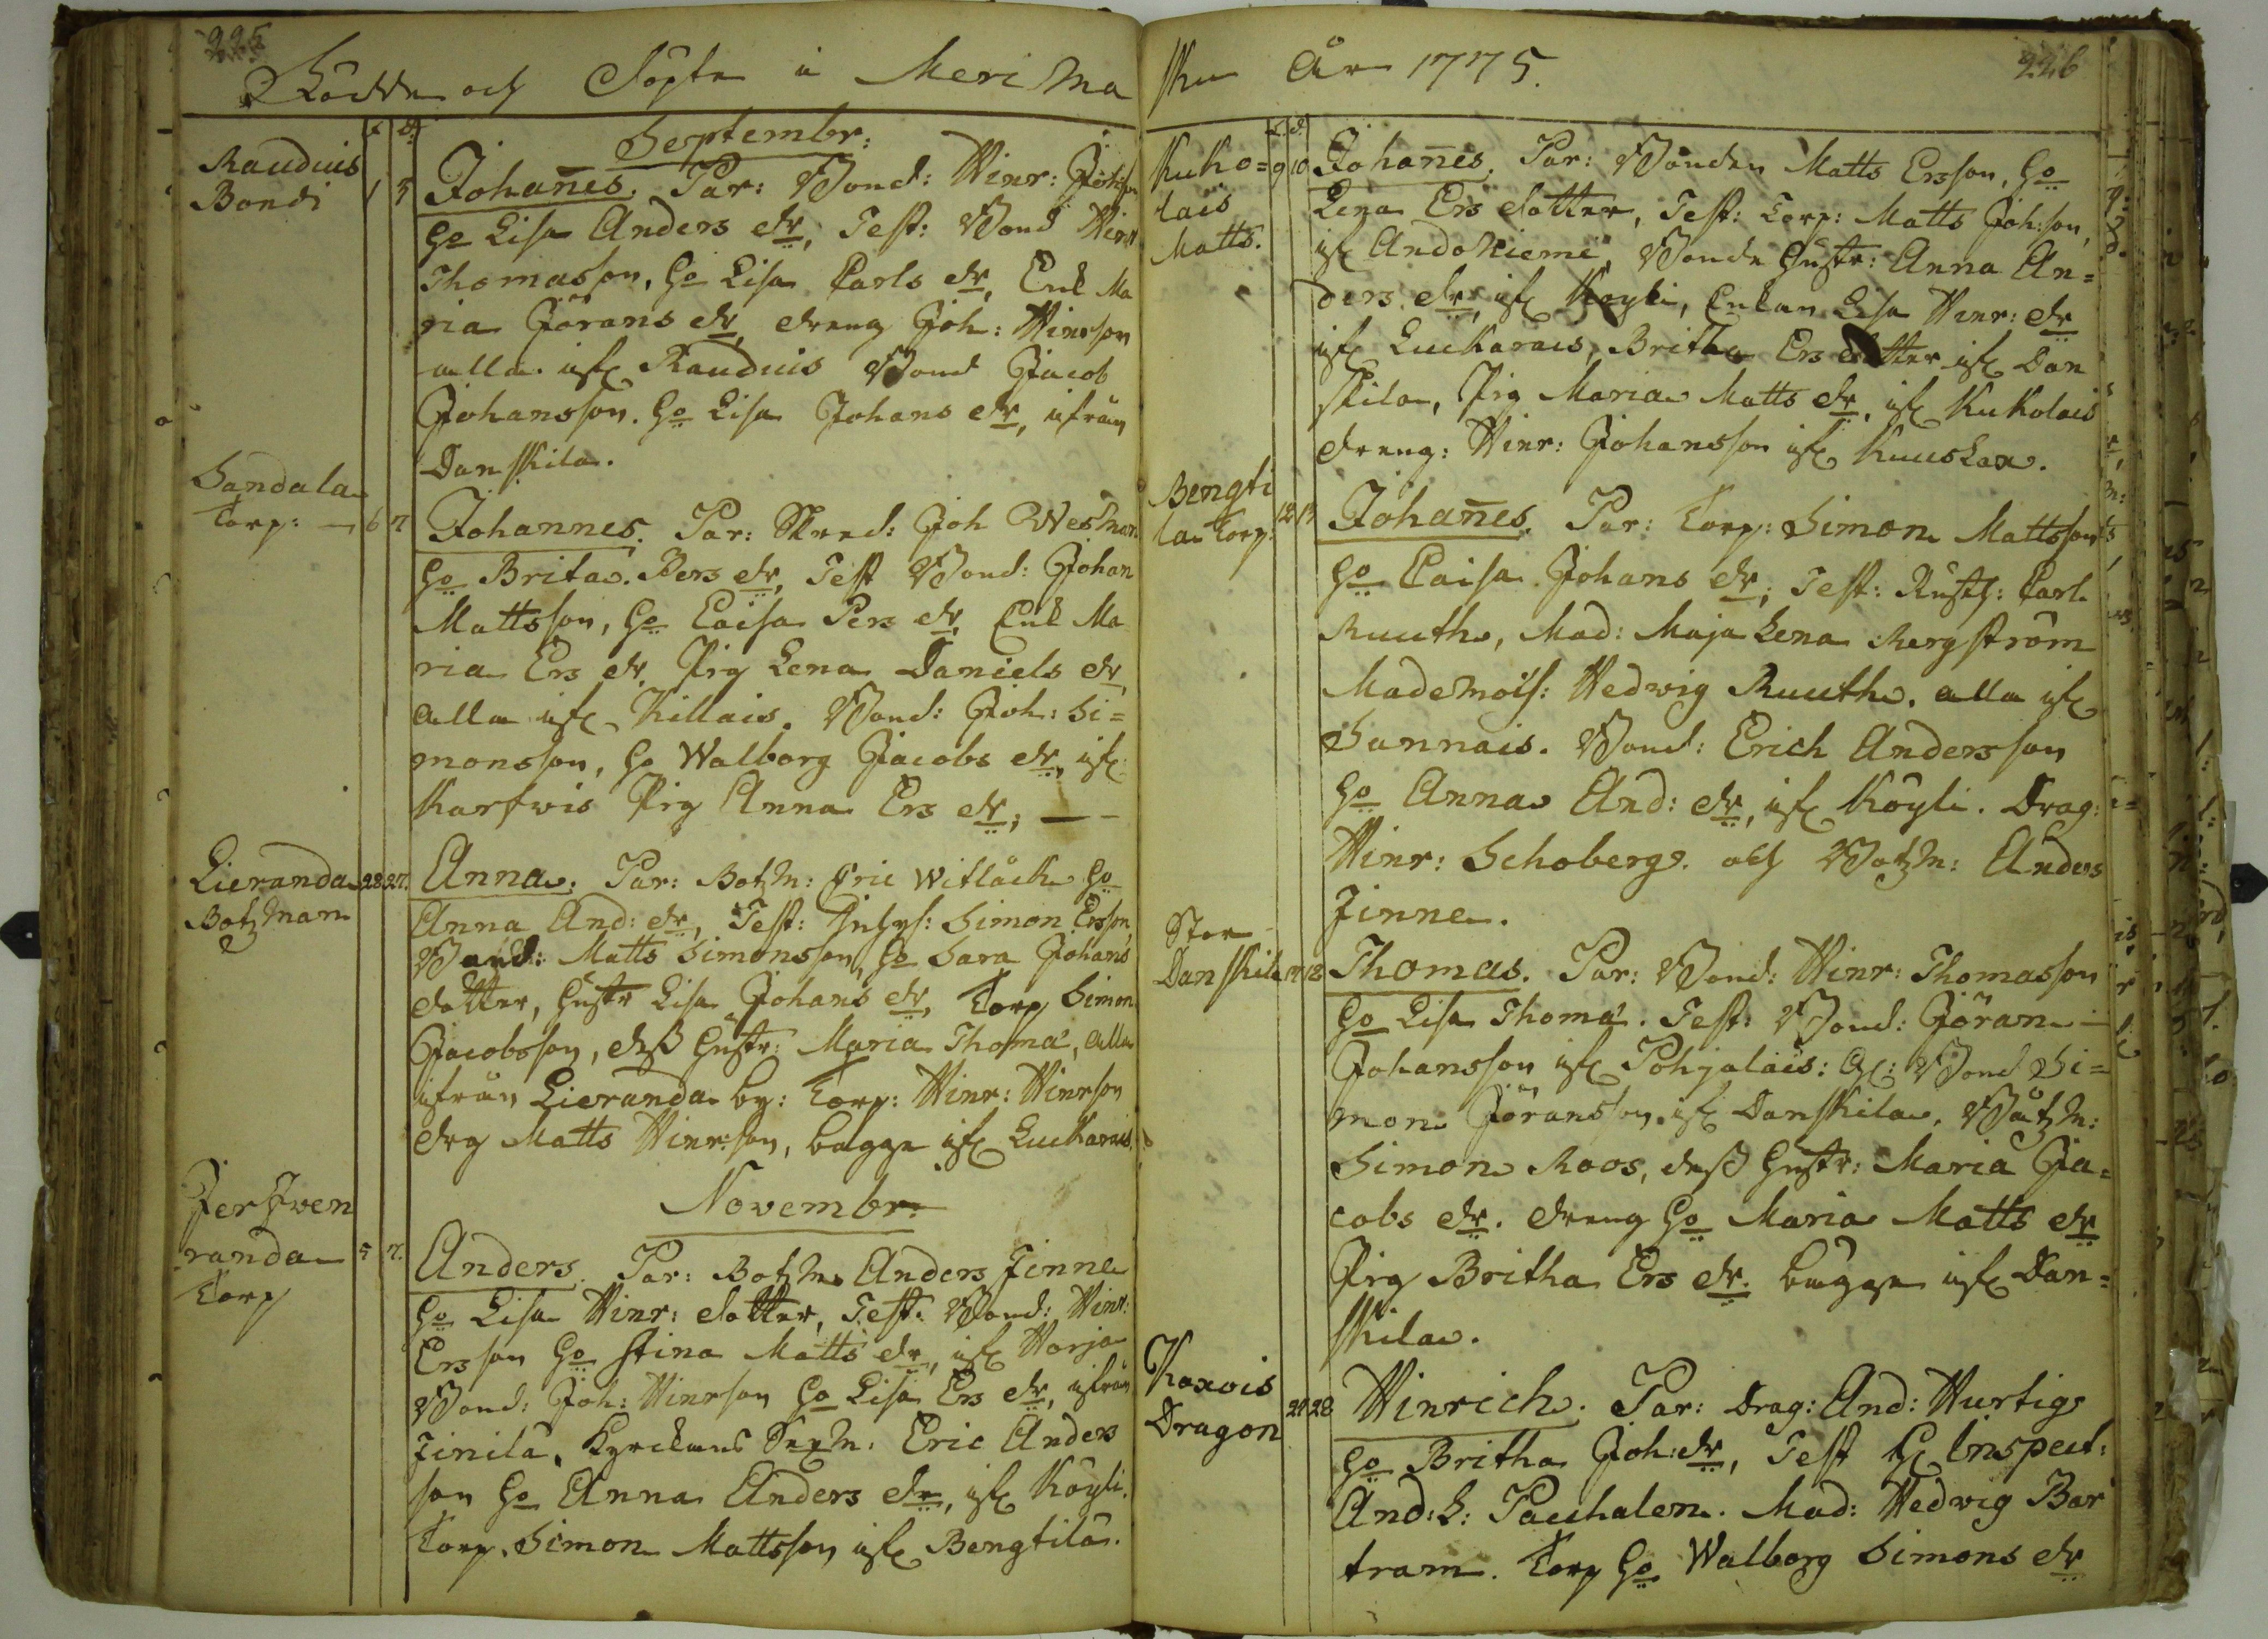 225
Födde och Döpte i Meri Ma
f. d.
Septembr:
Rauduis
Bondi
1 3 Johan̄es. Par: Bond: Hinr: Johsson
Ho Lisa Anders dr, Test: Bond Hinr
Thomasson, Ho Lisa Carls dr, Enk Ma
ria Jörans dr, dreng Joh: Hinrson
alla ifr Rauduis Bond Jacob
Johansson. Ho Lisa Johans dr, ifrån
Danskila.
Sandala
Torp: 6 7 Johannes. Par: Joh Westman
Ho Brita Pers dr, Test Bond: Johan
Mattsson, Ho Caisa Pers dr, Enk Ma
ria Ers dr Pig Lena Daniels dr
alla ifr Killais. Bond: Joh: Si=
monsson, Ho Walborg Jacobs dr, ifr
Karfwis Pig Anna Ers dr, —
Lieranda
Botzman
27. Anna. Par: Botzm: Eric Witlåck Ho
Anna And: dr, Test: Simon Ersson,
Bond: Matts Simonsson, Ho Sara Johans
dotter, Hustr Lisa Johans dr, Torp Simon
Jacobsson, dess Hustr: Maria Thomæ, alla
ifrån Lieranda by: Torp: Hinr: Hinrson
drg Matts Hinr:son, bägge ifr Luckarais.
Novembr:
Jerfwen
randa
Torp
5 7. Anders. Par: Botzm. Anders Finne
Ho Lisa Hinr: dotter, Test: Bond: Hinr:
Ersson Ho Stina Matts dr, ifr Harja
Bond: Joh: Hinrson Ho Lisa Ers dr, ifrån
Jinilä, Kyrckans Sexm: Eric Anders
son Ho Anna Anders dr, ifr Köyli.
Torp. Simon Mattsson ifr Bengtilä.
sku År 1775.
226
f. d.
Kuko=
lais
Matts.
9 10 Johan̄es. Par: Bonden Matts Ersson, Ho
Lena Ers dotter, Test: Torp: Matts Joh:son,
ifr Andoniemi, Bonde Hustr: Anna An=
ders dr, ifr Köyli, Enkan Lisa Hinr: dr
ifr Luckarais, Britha Ers dotter ifr Dan
skila, Pig Maria Matts dr, ifr Kukolais
dreng: Hinr: Johansson ifr Kuuslax.
Bengti
la Torp:
12 13 Johan̄es. Par: Torp: Simon Mattsson
Ho Caisa Johans dr, Test: Rusth: Carl
Ruuth, Mad: Maja Lena Bergström
Mademois: Hedwig Ruuth, alla ifr
Sannais. Bond: Erich Andersson
Ho Anna And: dr, ifr Köyli. Drag:
Hinr: Schoberg. och Botzm: Anders
Finne.
Stor
Danskila
17 18 Thomas. Par: Bond: Hinr: Thomasson
Ho Lisa Thomæ. Test: Bond: Jöran —
Johansson ifr Pohjalais: Bond Si=
mon Jöransson ifr Danskila, Båtzm:
Simon Roos, dess Hustr: Maria Ja=
cobs dr. dreng Ho Maria Matts dr
Pig Britha Ers dr. bägge ifr Dan=
skila.
Kaxois
Dragon
28 Hinrich. Par: Drag: And: Hurtig
Ho Britha Joh:dr, Test Hr Inspect:
And: L: Pacchalen. Mad: Hedwig Bar
tram. Torp Ho Walborg Simons dr